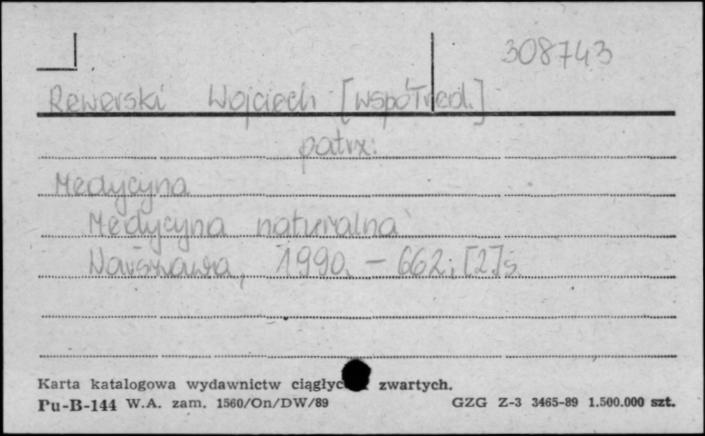 308743
Rewerski Wojciech [współred.]
patrz:
Medycyna
Medycyna naturalna
Warszawa, 1990. – 662; [2] s.
Karta katalogowa wydawnictw ciągłyc zwartych.
Pu-B-144 W.A. zam. 1560/On/DW/89 GZG Z-3 3465-89 1.500.000 szt.